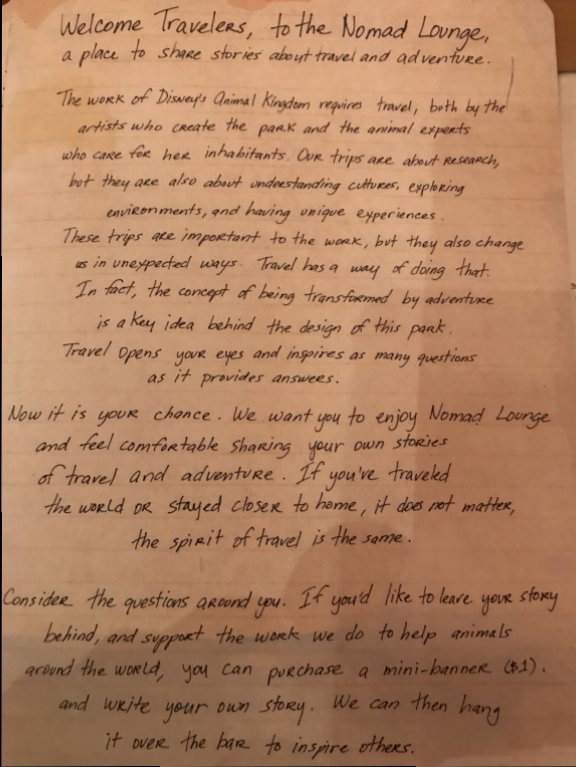 Welcome Travelers, to the Nomad Lounge,
a place to share stories about travel and adventure.
The work of Disney's Animal Kingdom requires travel, both by the
artists who create the park and the animal experts
who care for her inhabitants. Our trips are about research,
but they are also about understanding cultures, exploring
environments, and having unique experiences.
These trips are important to the work, but they also change
us in unexpected ways. Travel has a way of doing that.
In fact, the concept of being transformed by adventure
is a key idea behind the design of this park.
Travel opens your eyes and inspires as many questions
as it provides answers.
Now it is your chance. We want you to enjoy Nomad Lounge
and feel comfortable sharing your own stories
of travel and adventure. If you've traveled
the world or stayed closer to home, it does not matter,
the spirit of travel is the same.
Consider the questions around you. If you'd like to leave your story
behind, and support the work we do to help animals
around the world, you can purchase a mini-banner ($1).
and write your own story. We can then hang
it over the bar to inspire others.